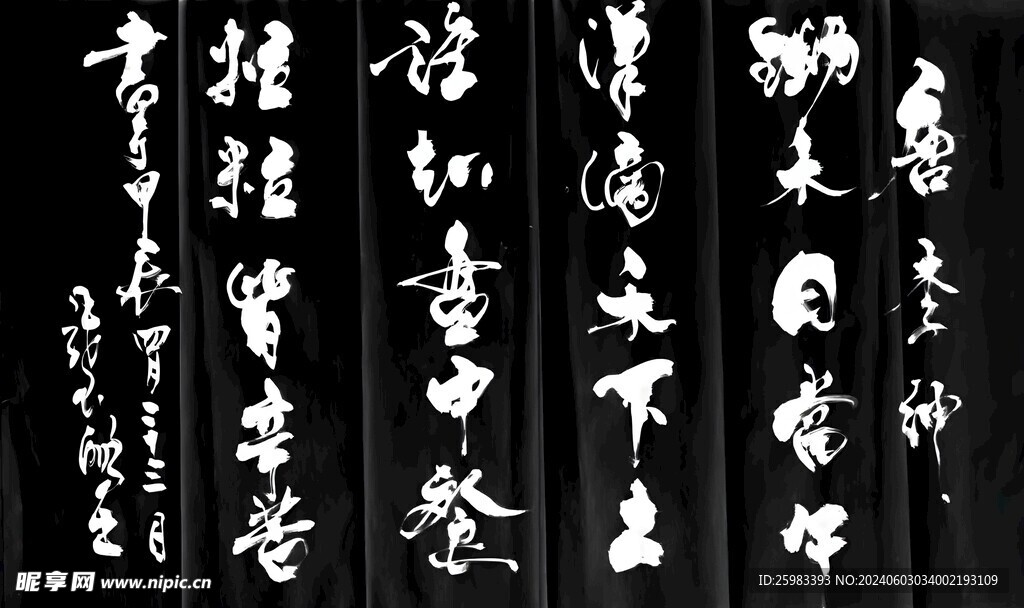 唐 李紳
鋤禾日當午
漢滴禾下土
誰知盘中餐
粒粒皆辛苦
書於甲辰四月
昵享网 www.nipic.cn
ID:25983393 NO:20240603034002193109